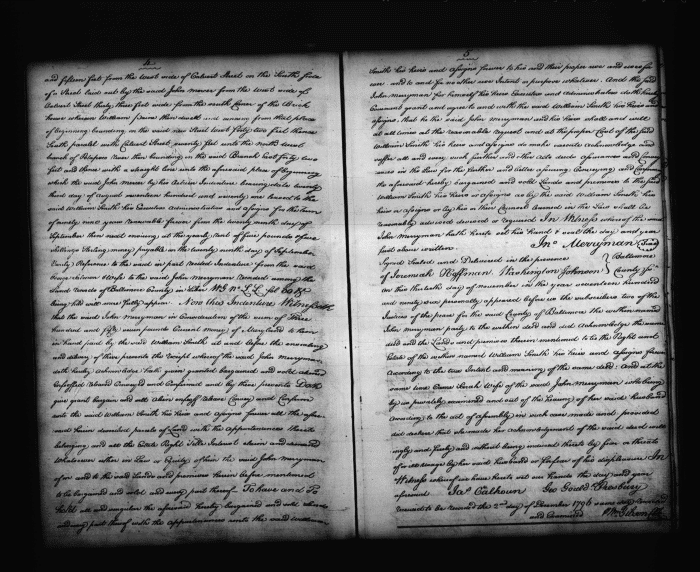 4
and fifteen feet from the West side of Calvert Street on the South side
of a Street laid out by the said John from the West side of
Calvert Street thirty three feet wide from the south Corner of the Brick
house wherein William now dwells and running from that place
of beginning bounding on the said new Street forty two feet thence
South parallel with Calvert Street ninety feet unto the north West
branch of Patapsco River then bounding on the said Branch East forty two
feet and thence with a straight line unto the aforesaid place of beginning
which the said John by his certain Indenture bearing date twenty
third day of August seventeen hundred and ninety one leased to the
said William Smith his Executors Administrators and assigns for the term
of ninety nine years renewable forever from the twenty ninth day of
September then next ensuing at the yearly rent of five pounds
shillings Sterling money payable on the twenty ninth day of September
Yearly Reference to the said in part recited Indenture from the said
John Wife to the said John Merryman recorded among the
Land records of Baltimore County in Liber WG No LL fol
being had will more fully appear Now this Indenture Witnesseth
that the said John Merryman in Consideration of the sum of three
hundred and fifty seven pounds Current money of Maryland to him
in hand paid by the said William Smith at and before the ensealing
and delivery of these presents the receipt whereof the said John Merryman
doth hereby acknowledge hath given granted bargained and sold aliened
enfeoffed released Conveyed and Confirmed and by these presents Doth
give grant bargain and sell alien enfeoff release Convey and Confirm
unto the said William Smith his Heirs and Assigns forever all the afore
said herein described parcels of Land with the appurtenances thereto
belonging and all the Estate Right Title Interest claim and demand
Whatsoever either in Law or Equity of him the said John Merryman
of in and to the said Lands and premises herein before mentioned
to be bargained and sold and every part thereof To have and To
hold all and singular the aforesaid hereby bargained and sold lands
and every part thereof with the appurtenances unto the said William
5
Smith his heirs and assigns forever to his and their proper use and uses for
ever and to and for no other use Intent or purpose whatever. And the said
John Merryman for himself his heirs Executors and Administrators doth hereby
Covenant grant and agree to and with the said William Smith his heirs and
assigns, that he the said John Merryman and his heirs shall and will
at all times at the reasonable request and at the proper Cost of the said
William Smith his heirs and assigns do make execute Acknowledge and
suffer all and every such further and other Acts deeds and
in the Law for the further and better assuring Conveying and Confirming
the aforesaid hereby bargained and sold Lands and premises to the said
William Smith his heirs or assigns as by the said William Smith his
heirs or assigns or by his or their Council learned in the Law shall be
reasonably advised devised or required In Witness whereof the said
John Merryman hath hereto set his hand & seal the day and year
first above written. Jno. Merryman (Seal)
Signed Sealed and Delivered in the presence } Baltimore
of Jeremiah Hoffman Worthington Johnson } County Ss
on this thirtieth day of november in the year seventeen hundred
and ninety six personally appeared before us the subscribers two of the
Justices of the peace for the said County of Baltimore the within named
John Merryman party to the within deed and did acknowledge the same
deed and the Lands and premises therein mentioned to be the Right and
Estate of the within named William Smith his heirs and Assigns forever
According to the true Intent and meaning of the same deed. And at the
same time Came Sarah Wife of the said John Merryman who being
by us privately examined and out of the hearing of her said Husband
according to the act of assembly in such case made and provided
did declare that she made her acknowledgement of the said deed will
ingly and freely and without being induced thereto by fear or threats
of or ill usage by her said husband or for fear of his displeasure In
Witness whereof we have hereto set our hands the day and year
aforesaid Jas. Calhoun Geo Gould Presbury
received to be recorded the 2nd day of December 1796 same day recorded
and examined Wm Gibson